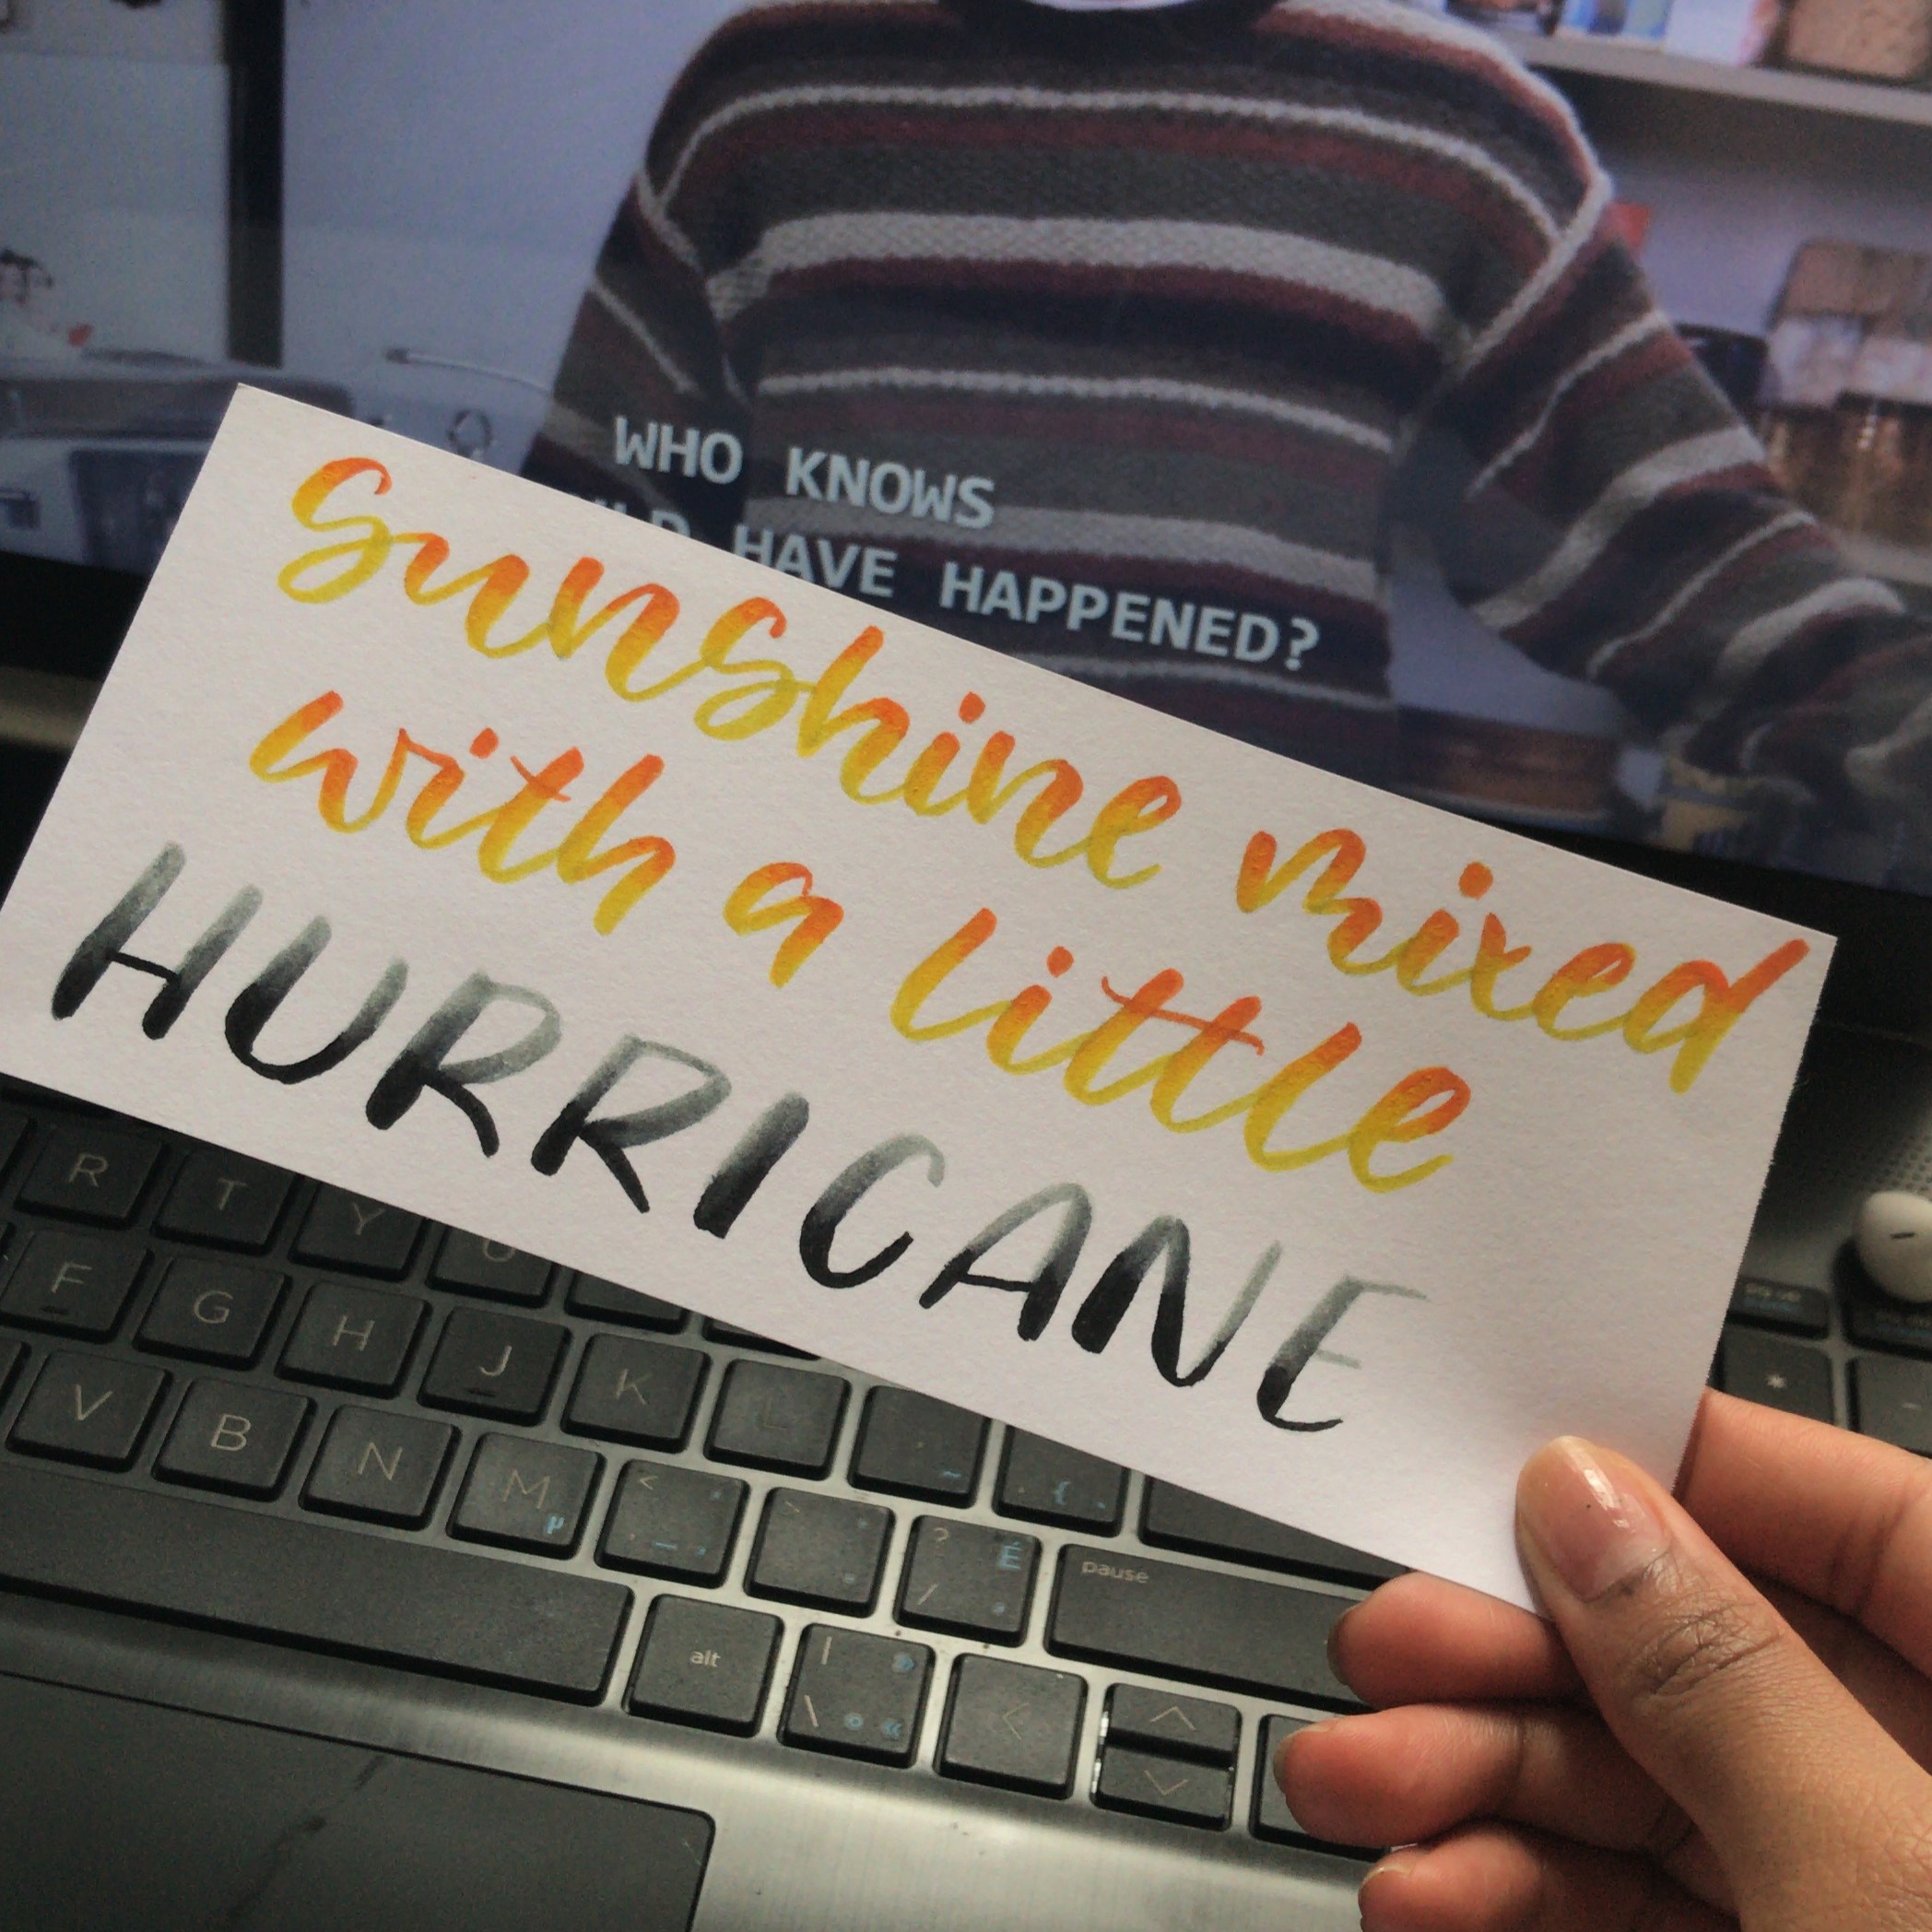 WHO KNOWS
HAVE HAPPENED?
sunshine mixed
with a little
HURRICANE
R T Y U
F G H J K L
V B N M µ < >  ? É /
pause
alt | \ » «
pg up
*